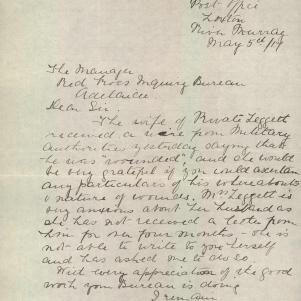 Post Office
Loxton
River Murray
May 5th/17
The Manager
Red Cross Inquiry Bureau
Adelaide
Dear Sir.
The wife of Private Leggett
received a wire from Military
Authorities yesterday saying that
he was "wounded", and she would
be very grateful if you could ascertain
any particulars of his whereabouts
& nature of wounds. Mrs Leggett is
very anxious about her husband as
she has not received a letter from
him for over four months - she is
not able to write to you herself
and has asked me to do so.
With every appreciation of the good
work your Bureau is doing
I remain